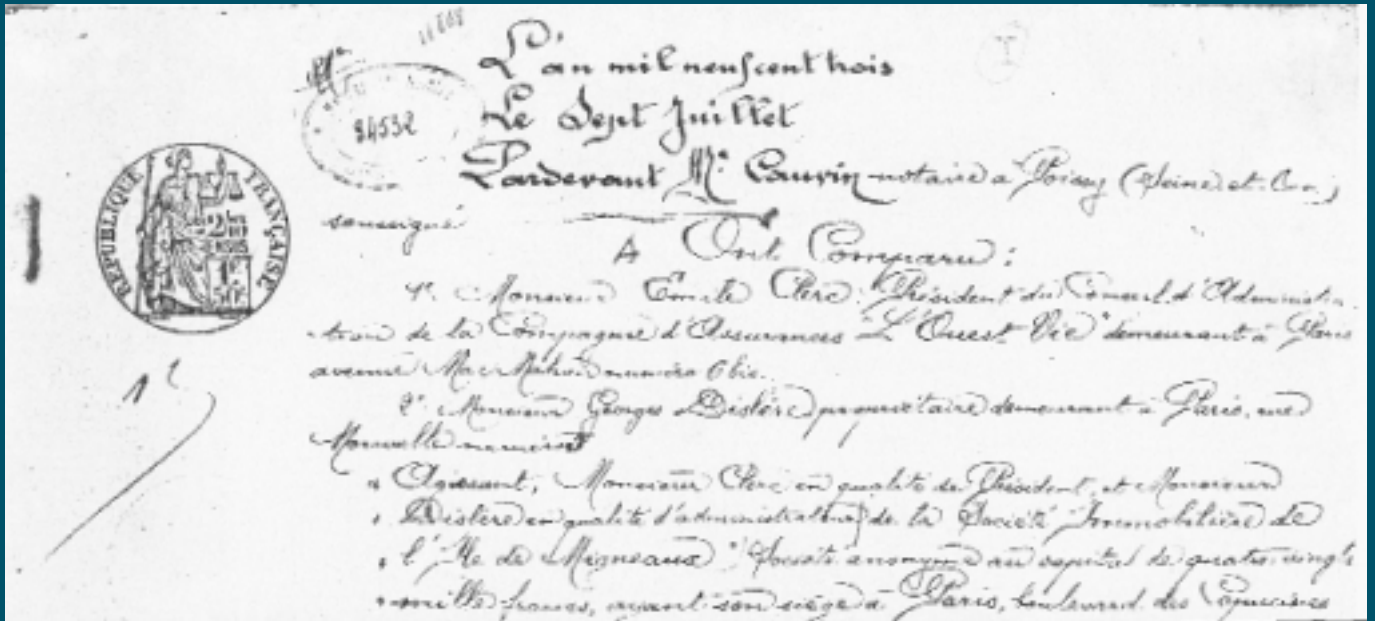 L'an mil neuf cent trois
84532
Le Sept Juillet
Pardevant Me Cauvin notaire à Poissy (Seine-et-Oise)
soussigné
RÉPUBLIQUE FRANÇAISE
A Ont Comparu :
1º Monsieur Emile Clerc Président du Conseil d'Administra-
tion de la Compagnie d'Assurances "L'Ouest Vie" demeurant à Paris
avenue Mac Mahon numéro 6 bis.
2º Monsieur Georges Dislère propriétaire demeurant à Paris, rue
numéro
Agissant, Monsieur Clerc en qualité de Président, et Monsieur
Dislère en qualité d'administrateur de la Société Immobilière de
l'Ile de Migneaux" Société anonyme au capital de quatre vingt
mille francs, ayant son siège à Paris, boulevard des Capucines